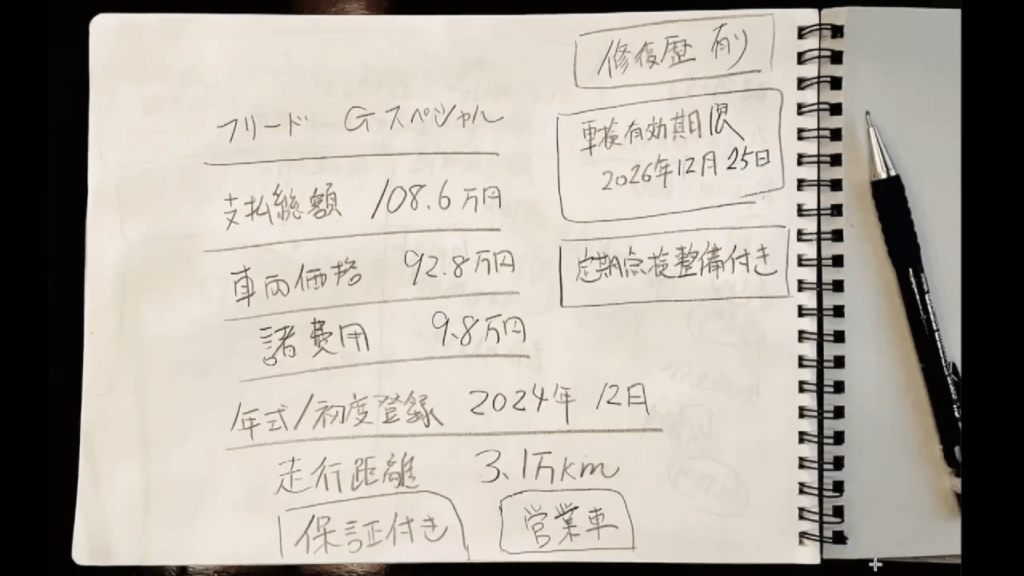 修復歴 有り
フリード Gスペシャル
車検有効期限
2026年12月25日
支払総額 108.6万円
定期点検整備付き
車両価格 92.8万円
諸費用 9.8万円
年式/初度登録 2024年 12月
走行距離 3.1万km
保証付き 営業車